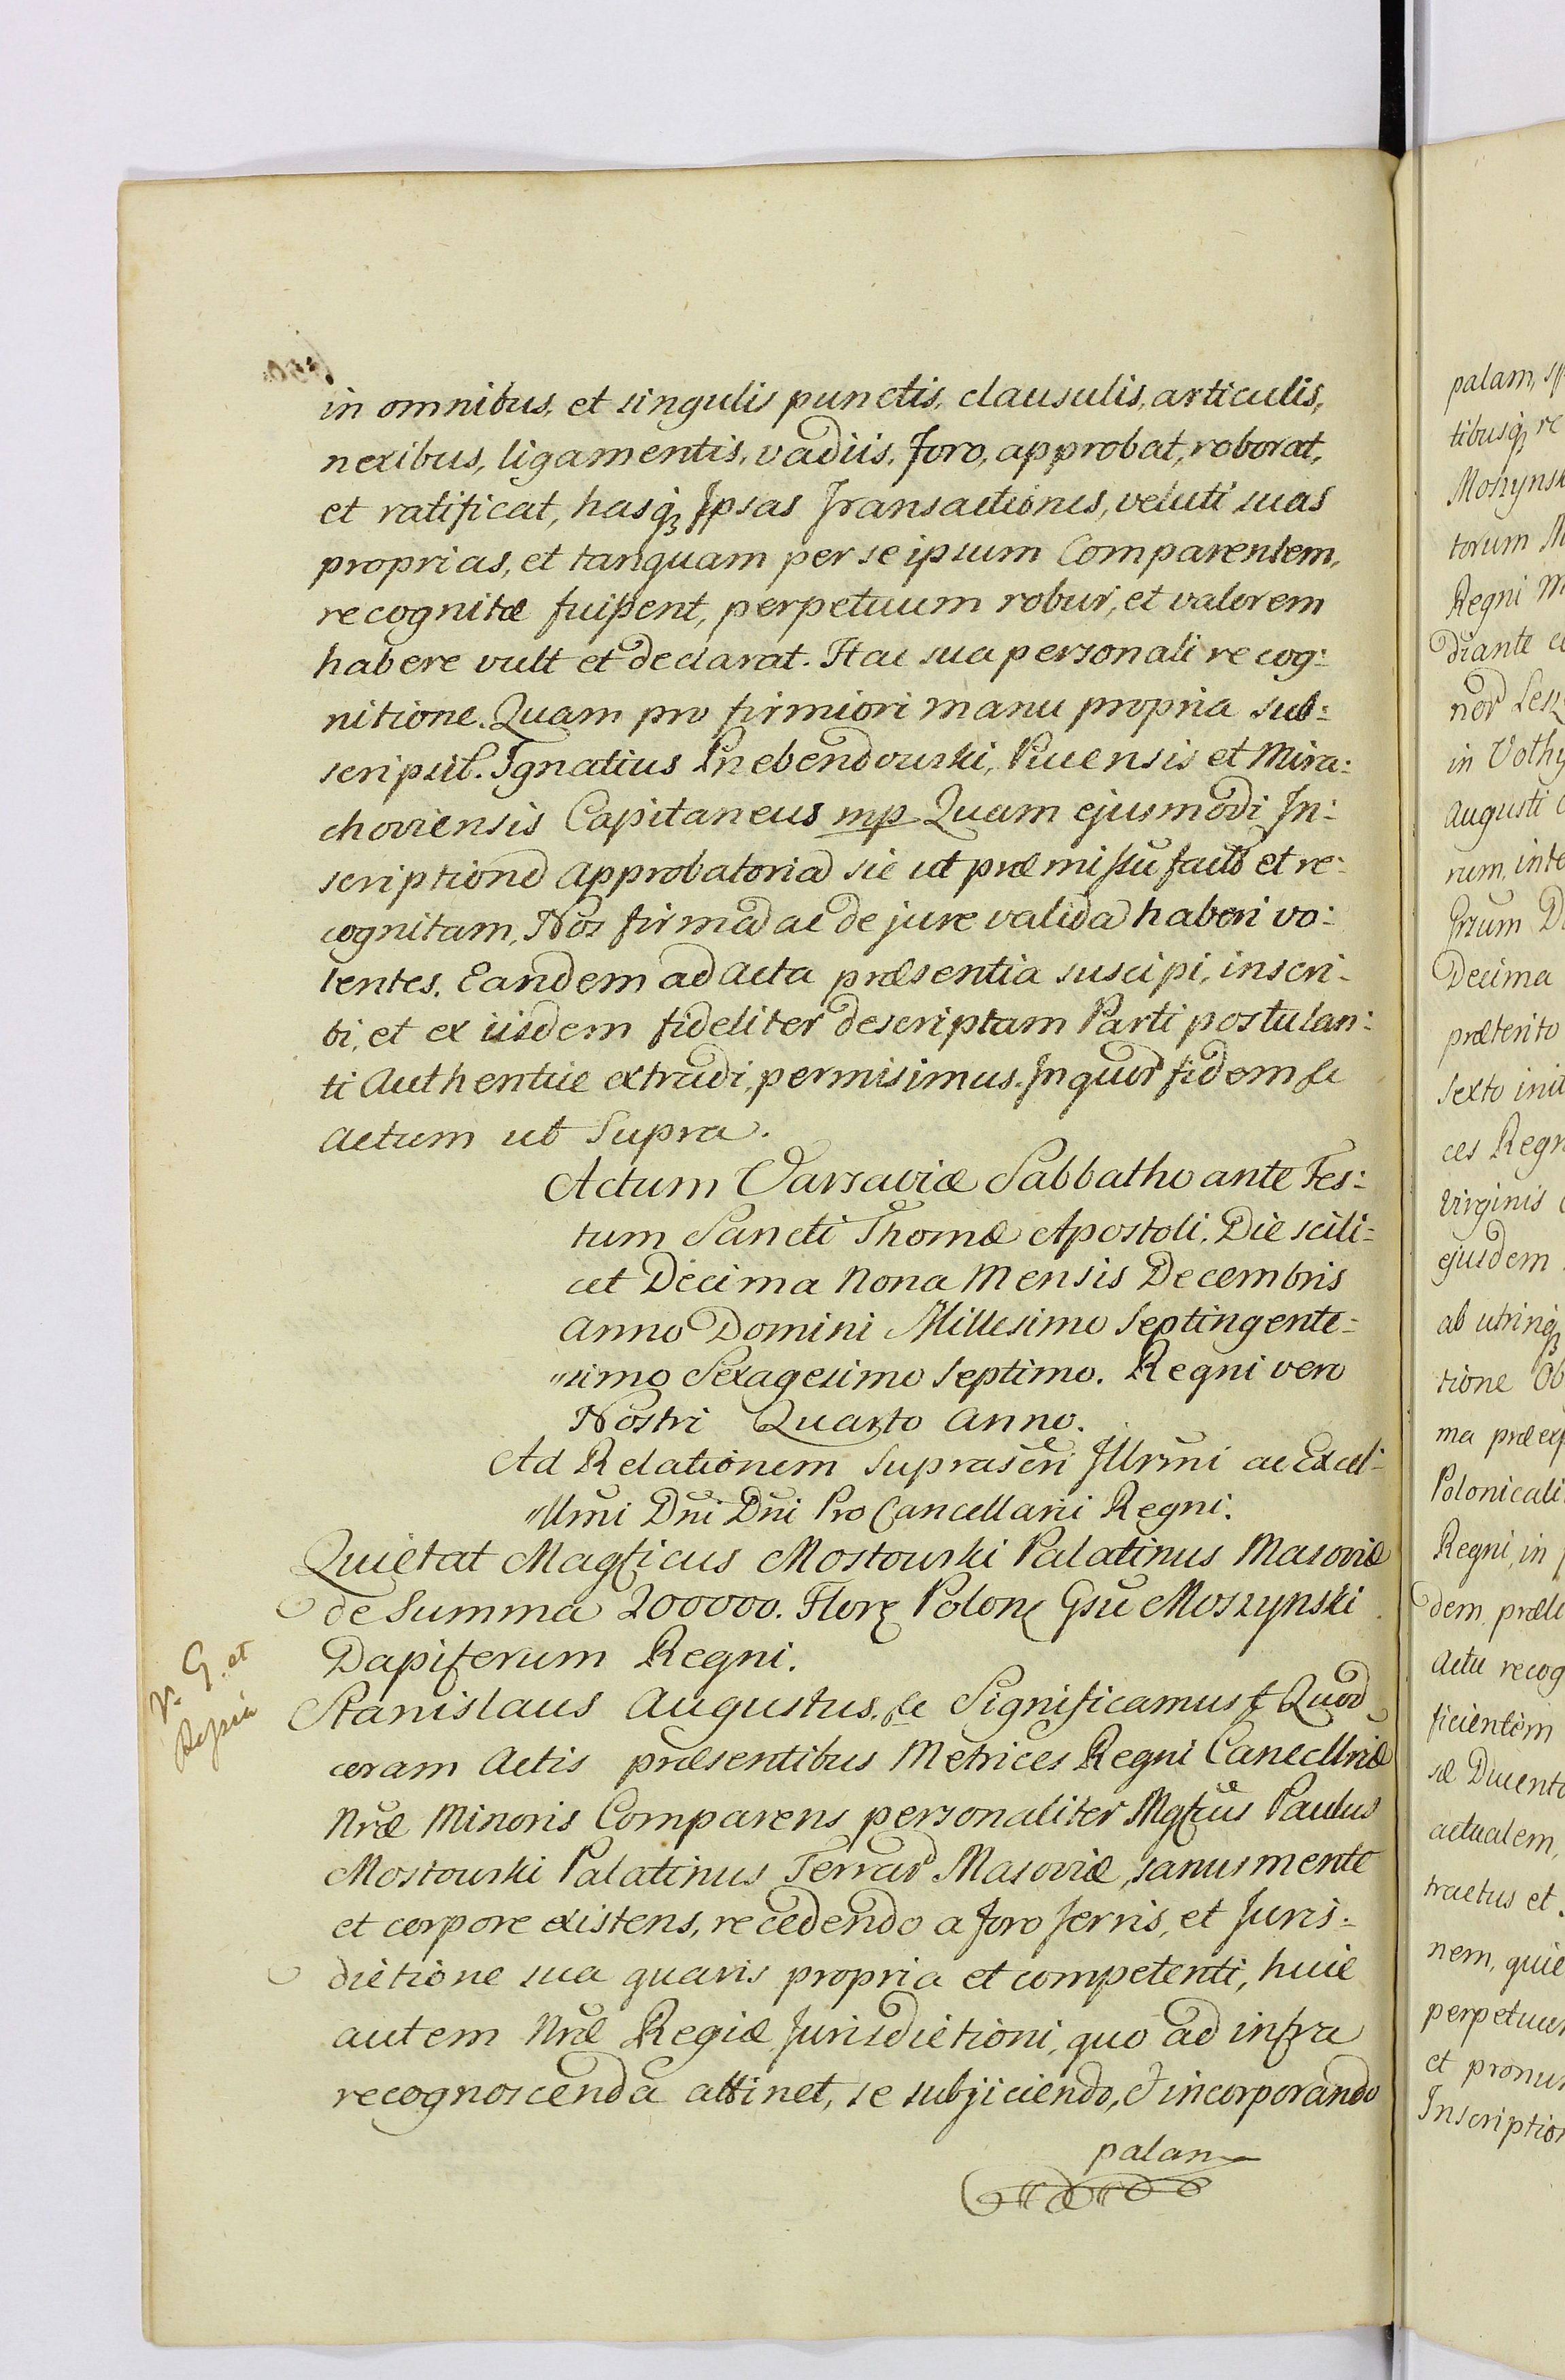 in omnibus, et singulis punctis, clausulis, articulis,
nexibus, ligamentis, vadiis, foro, approbat, roborat,
et ratificat, hasq₃ Ipsas Transactiones, veluti suas
proprias, et tanquam per se ipsum Comparentem,
recognitæ fuißent, perpetuum robur, et valorem
habere vult et declarat. Hac sua personali recog:
nitione. Quam pro firmiori manu propria sub:
scripsit. Ignatius Przebendowski, Pucensis et Mira:
choviensis Capitaneus mp Quam ejusmodi In:
scriptione approbatoria sic ut præmißu facta et re:
cognitam, Nos firma ac de jure valida haberi vo:
lentes. Eandem ad acta præsentia suscipi, inscri-
bi, et ex iisdem fideliter descriptam Parti postulan:
ti Authentice extradi, permisimus. In quor fidem &c
actum ut Supra.
Actum Varsaviæ Sabbatho ante Fes:
tum Sancti Thomæ Apostoli. Die scili:
cet Decima Nona Mensis Decembris
Anno Domini Millesimo Septingente:
"simo Sexagesimo Septimo. Regni vero
Nostri Quarto Anno.
Ad Relationem Suprascri Illrmi ac Excel:
"llmi Dni Dni Pro Cancellarii Regni.
Quietat Magcficus Mostowski Palatinus Masoviæ
de Summa 200000. Flor Polon Gsu Moszynski
Dapiferum Regni.
Stanislaus Augustus, &c Significamus &c Quod
coram Actis præsentibus Metrices Regni Cancellriæ
Nræ Minoris Comparens personaliter Mgcus Paulus
Mostowski Palatinus Terrar Masoviæ, sanus mente
et corpore existens, recedendo a foro Terris, et Juris:
dictione sua quavis propria et competenti, huic
autem Nræ Regiæ Jurisdictioni, quo ad infra
recognoscenda attinet, se subjiciendo, & incorporando
palam
V. G. et
palam,
tibusq₃ re
Moszynsk
torum M
Regni M
diante
nor Lesz
in Vothy
Augusti
rum, inte
Decima
præterito
Sexto init
ces Regn
Virginis
ejusdem
ab utrinq₃
tione Ob
ma præexp
Polonicali
Regni, in
dem, præli
Actu recog
ficientem
sæ Ducento
actualem,
tractus et
nem, quie
perpetuu
et pronun
Inscription